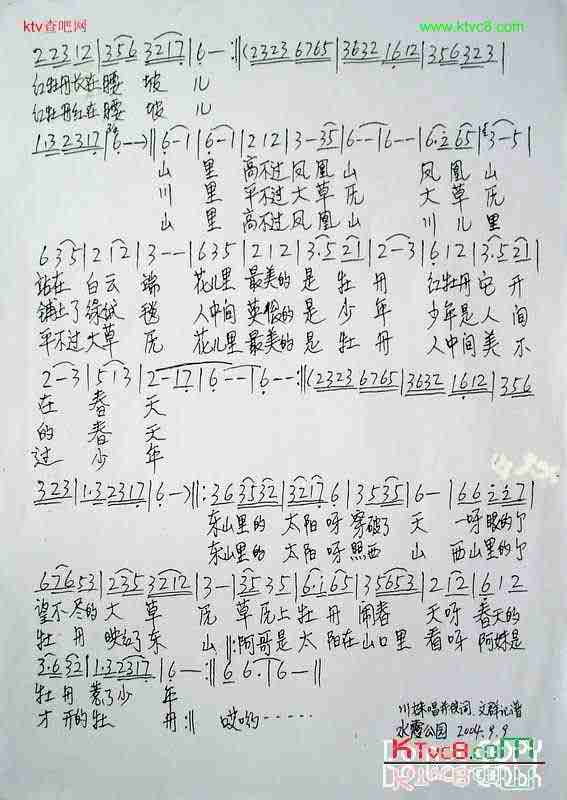 ktv查吧网
www.ktvc8.com
2 2 3 1 2 | 3 5 6 3 2 1 7 | 6 — :‖ ( 2 3 2 3 6 7 6 5 | 3 6 3 2 1 6 1 2 | 3 5 6 3 2 3 |
红牡丹长在腰 坡 儿
红牡丹红在腰 坡 儿
1·3 2 3 1 7 | 6 — ) ‖ 6 — 1 | 6 — 1 | 2 1 2 | 3 — 3 5 | 6 — — | 6 — — | 6·2 6 5 | 3 — 5 |
山 里 高不过凤凰山 凤凰山
川 里 平不过大草原 大草原
山 里 高不过凤凰山 川儿里
6 3 5 | 2 1 2 | 3 — — | 6 3 5 | 2 1 2 | 3·5 2 1 | 2 — 3 | 6 1 2 | 3·5 2 1 |
站在 白云 端 花儿里 最美的 是 牡 丹 红牡丹它开
铺上了绿绒 毯 人中间 英俊的 是 少 年 少年是人间
平不过大草 原 花儿里 最美的 是 牡 丹 人中间美不
2 — 3 | 5 1 3 | 2 — 1 7 | 6 — — | 6 — — :‖ ( 2 3 2 3 6 7 6 5 | 3 6 3 2 1 6 1 2 | 3 5 6
在 春 天
的 春 天
过 少 年
3 2 3 | 1·3 2 3 1 7 | 6 — ) ‖: 3 6 3 5 3 2 | 3 2 1 7 6 | 3 5 3 5 | 6 — | 6 6 2 2 7 |
东山里的 太阳呀 穿破了 天 一呀眼的个
东山里的 太阳呀 照西 山 西山里的个
6 7 6 5 3 | 2 3 5 3 2 1 2 | 3 — | 3 5 3 5 | 6·1 6 5 | 3 5 6 5 3 | 2 1 2 | 6 1 2
望不尽的 大 草 原 草原上 牡 丹 闹春 天呀 春天的
牡 丹 映红了东 山 ‖: 阿哥是 太阳在山口里 看呀 阿妹是
3·6 3 2 | 1·3 2 3 1 7 | 6 — :‖ 6 6· | 6 — ‖
牡丹 惹了少 年
才开的 牡 丹 :‖ 哎哟 ······
水霞公园 2004.9.9
KTvc8.com